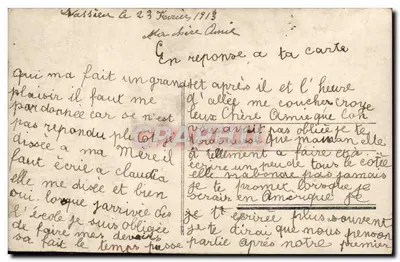 Vassieu le 23 Février 1913
Ma chère Amie
En reponse a ta carte
qui ma fait un grand
plaisir il faut me
pardonnée car se n'est
pas repondu plutot
disoée a ma Mère il
faut écrie a claudia
elle me disée et bien
oui. lorque j'arrivée dès
l'école je suis obligée
de faire mes devoirs
sa fait le temps passe
et après il et l'heure
d'allée me couchée croye
leux Chère Amie que l'on
pas obliée je te
que maman elle
a tellement a faire
ecrire un peu de tous le cotée
elle pas jamais
je te promet lorsque je
serais en Amérique je
je t' ecrirée plus souvent
je te dirai que nous penson
partie après notre premier